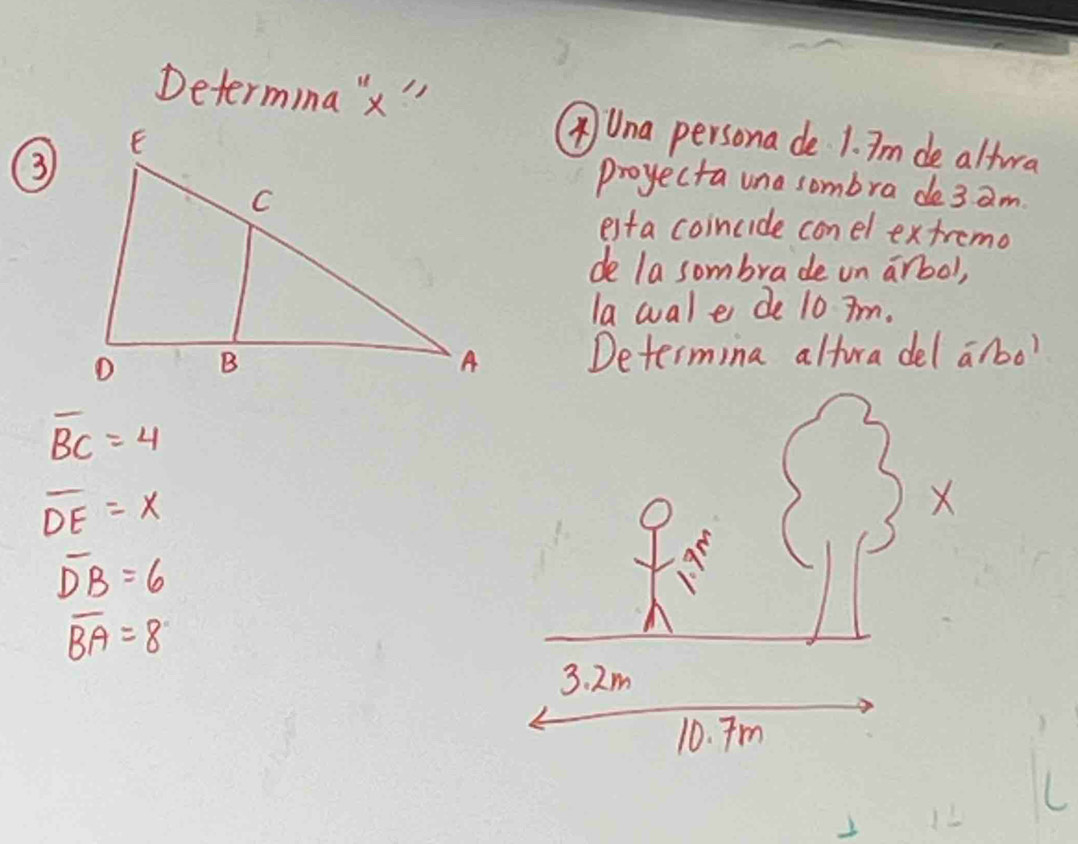 Determina "x"
③
E
C
D
B
A
BC = 4
DE = x
DB = 6
BA = 8
④ Una persona de 1.7m de altura
proyecta una sombra de 3.2m.
esta coincide con el extremo
de la sombra de un árbol,
la cual es de 10.7m.
Determina altura del árbol
1.7m
X
3.2m
10.7m